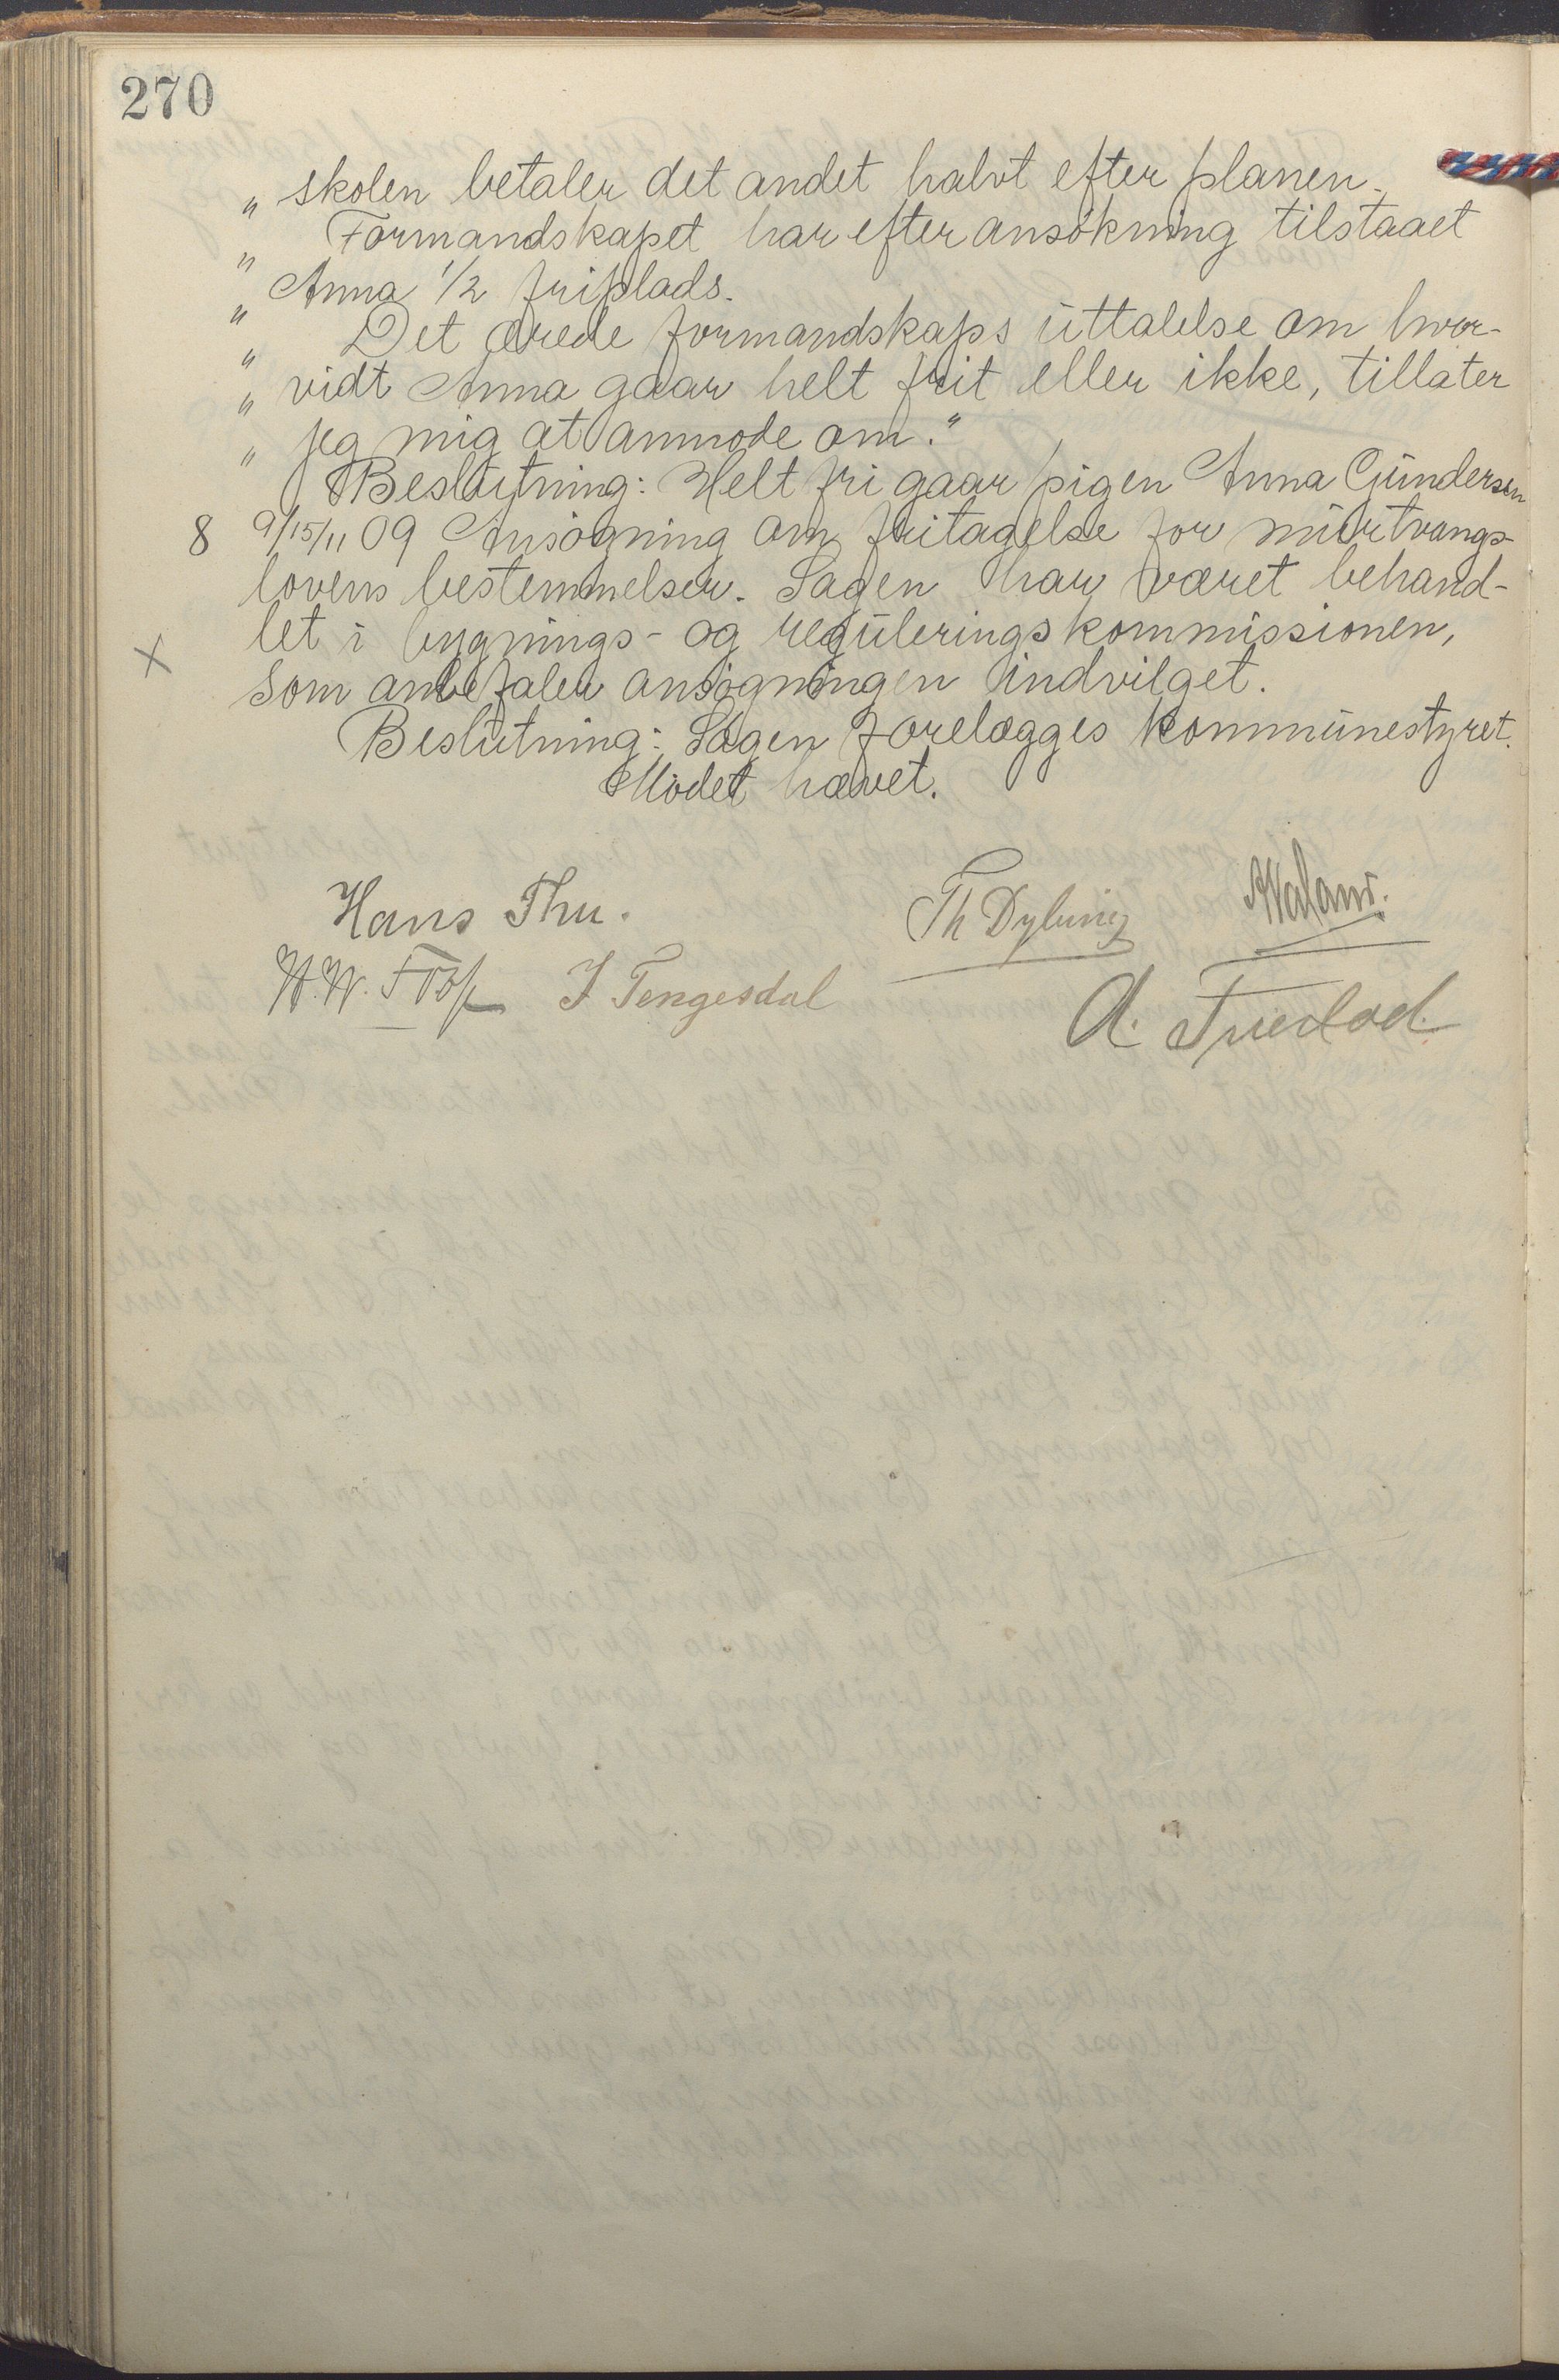 270
" skolen betaler det andet halvt efter planen.
" Formandskapet har efter ansökning tilstaaet
" Anna 1/2 friplads.
" Det ærede formandskaps uttalelse om hvor-
" vidt Anna gaar helt frit eller ikke, tillater
" jeg mig at anmode om."
Beslutning: Helt fri gaar pigen Anna Gundersen
8 9/15/11 09 Ansøgning om fritagelse for murtvangs-
lovens bestemmelser. Sagen har været behand-
let i bygnings- og reguleringskommissionen,
X
som anbefaler ansøgningen indvilget.
Beslutning: Sagen forelægges kommunestyret.
Mödet hævet.
Hans Thu.
Th Dybing
W.W.
J Tengesdal
A. Fuelod.